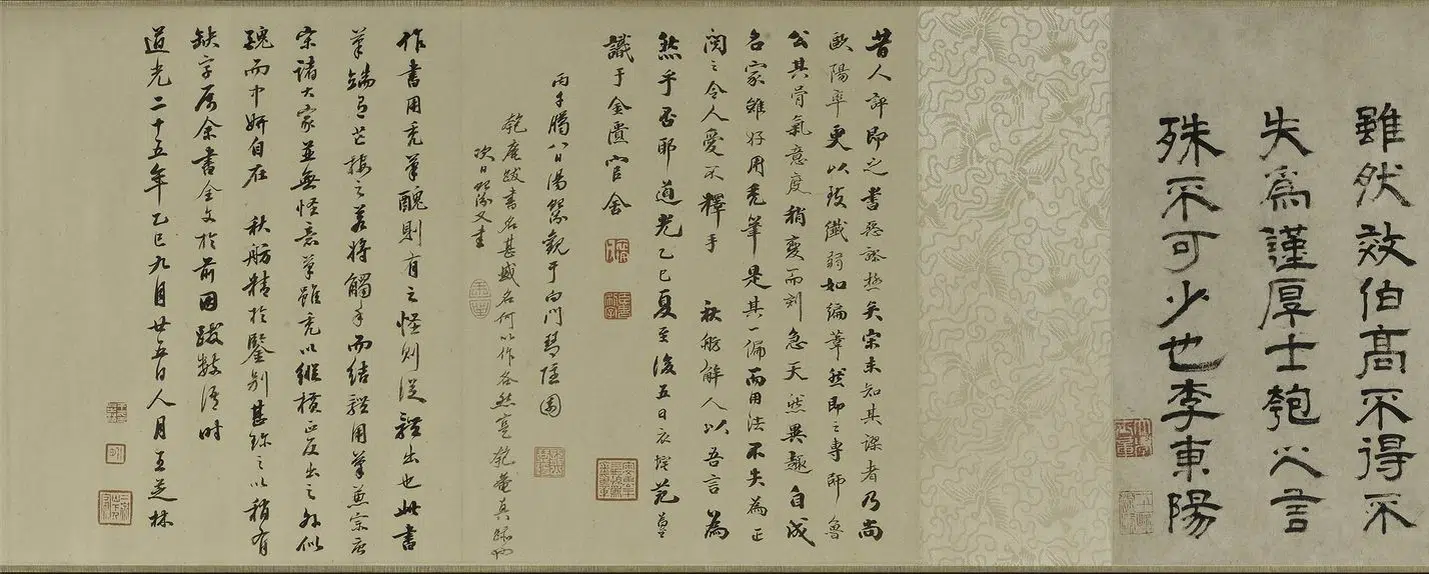 雖然效伯高不得不
失為謹厚士匏公言
殊不可少也李東陽
昔人評即之書惡札極矣宋末知其謬者乃尚
歐陽率更以殳纖弱如編葦然即之專師魯
公其骨氣意度稍變而刻急天然異趣自成
名家雖好用禿筆是其一偏而用法不失為正
閱之令人愛不釋手 秋舫解人以吾言為
然乎否耶道光乙巳夏至後五日
識于金匱官舍
丙子臘八日湯觀于向門琴隱園
匏庵跋書名甚盛名何以作各然定匏菴真跡也
次日又書
作書用禿筆醜則有之怪則從詭出也此書
筆端有芒接之若將觸手而結體用筆兼宗唐
宋諸大家並無怪意筆雖禿以縱橫正反出之外似
醜而中妍自在 秋舫精於鑒別甚珍之以稍有
缺字屬余書全文於前因跋數語時
道光二十五年乙巳九月廿五日人月王芝林